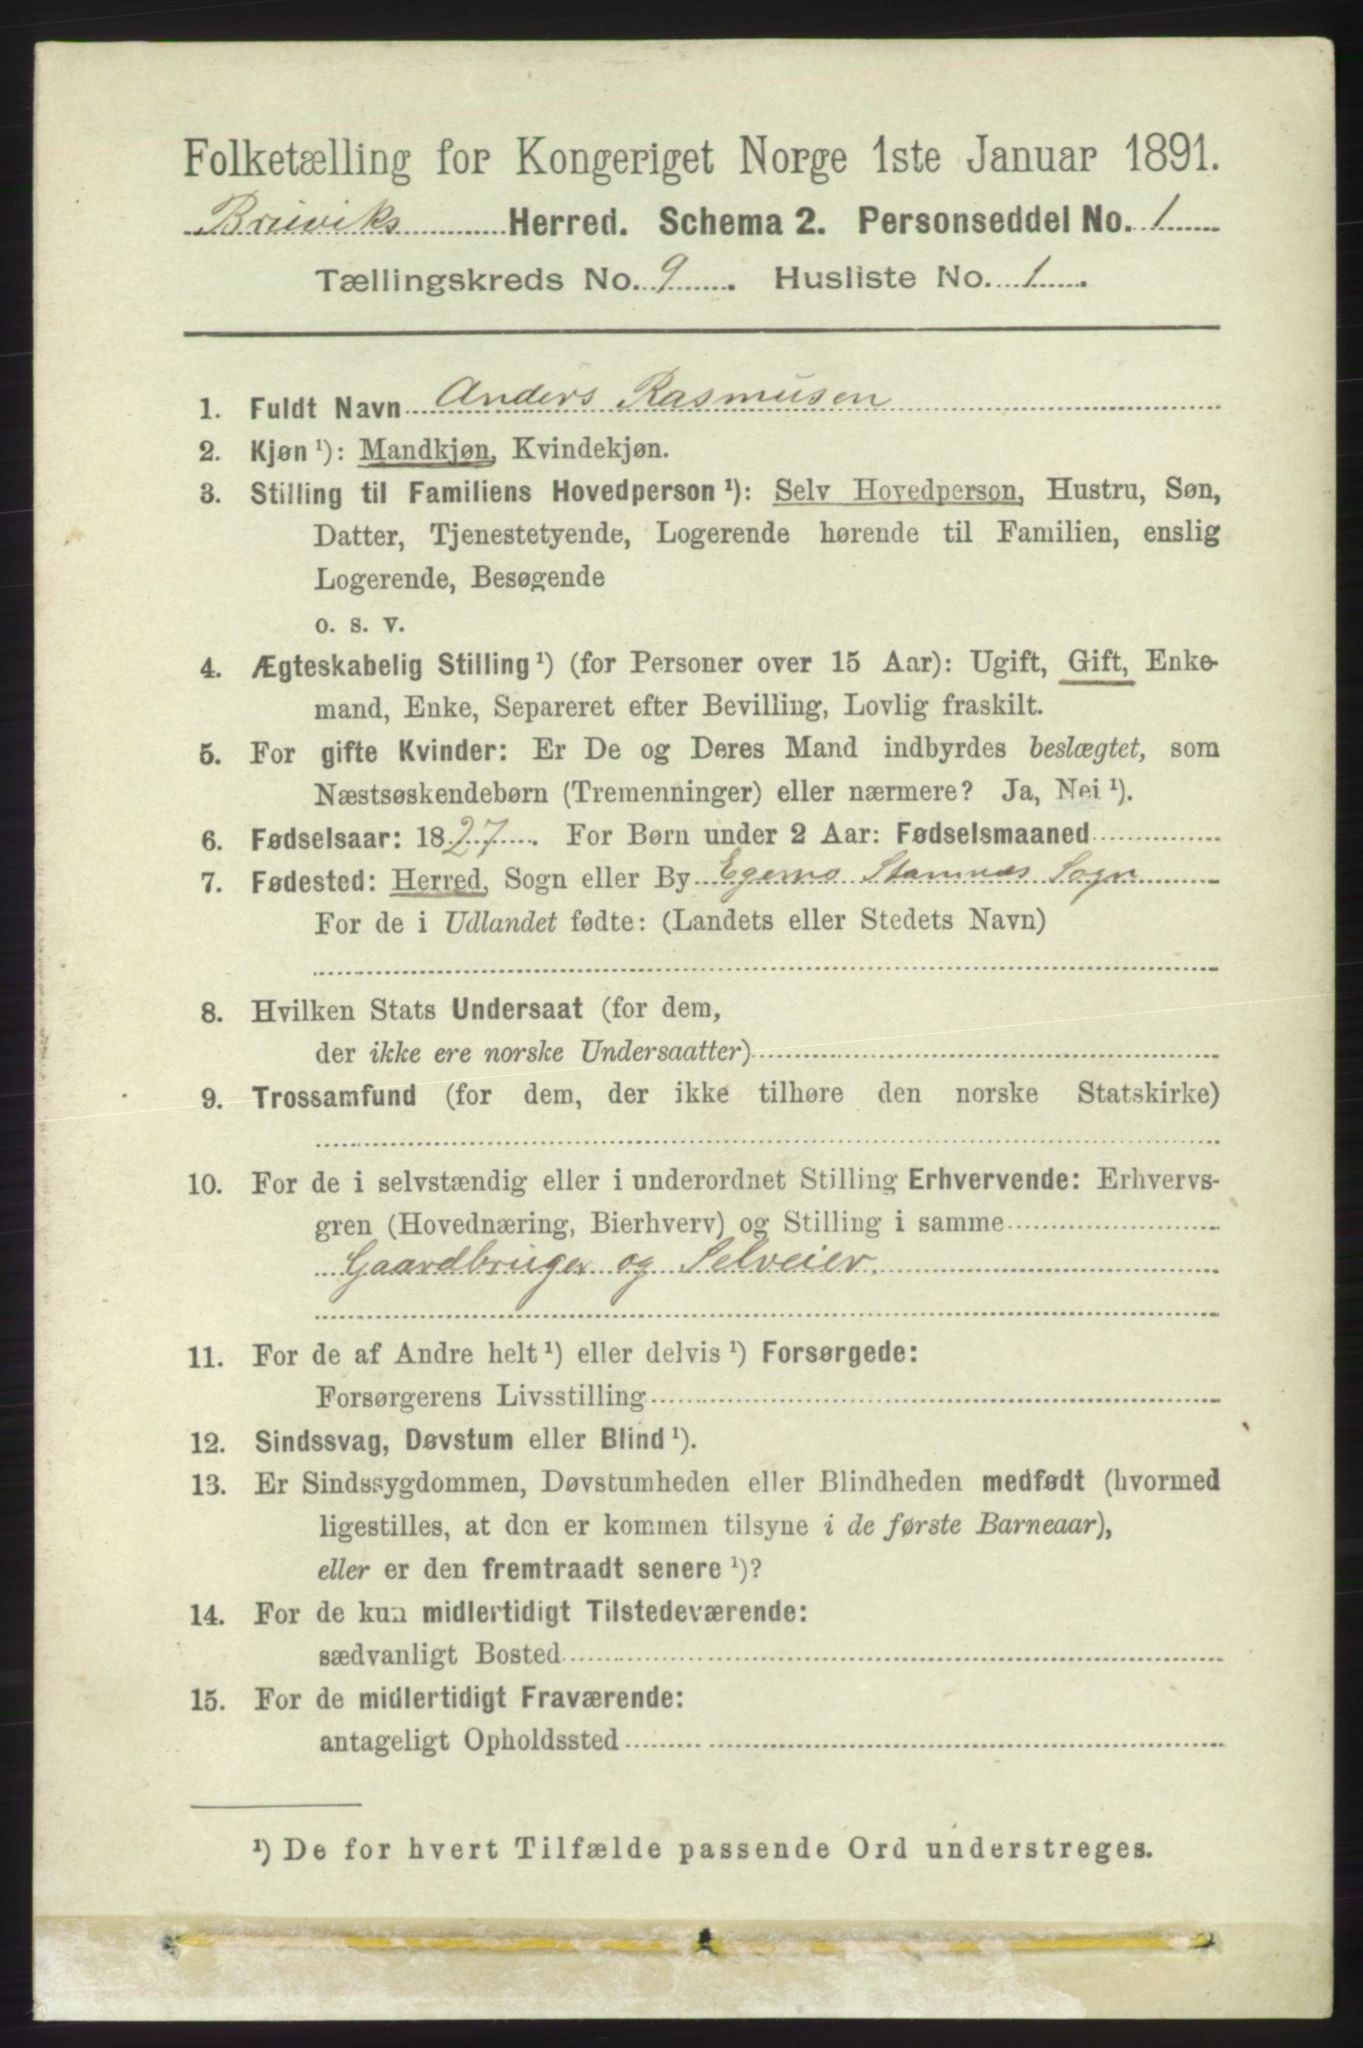 Folketælling for Kongeriget Norge 1ste Januar 1891.
Bruviks Herred. Schema 2. Personseddel No. 1
Tællingskreds No. 9. Husliste No. 1.
1. Fuldt Navn Anders Rasmusen
2. Kjøn ¹): Mandkjøn, Kvindekjøn.
3. Stilling til Familiens Hovedperson ¹): Selv Hovedperson, Hustru, Søn,
Datter, Tjenestetyende, Logerende hørende til Familien, enslig
Logerende, Besøgende
o. s. v.
4. Ægteskabelig Stilling ¹) (for Personer over 15 Aar): Ugift, Gift, Enke-
mand, Enke, Separeret efter Bevilling, Lovlig fraskilt.
5. For gifte Kvinder: Er De og Deres Mand indbyrdes beslægtet, som
Næstsøskendebørn (Tremenninger) eller nærmere? Ja, Nei ¹).
6. Fødselsaar: 1827. For Børn under 2 Aar: Fødselsmaaned
7. Fødested: Herred, Sogn eller By Stamnæs Sogn
For de i Udlandet fødte: (Landets eller Stedets Navn)
8. Hvilken Stats Undersaat (for dem,
der ikke ere norske Undersaatter)
9. Trossamfund (for dem, der ikke tilhøre den norske Statskirke)
10. For de i selvstændig eller i underordnet Stilling Erhvervende: Erhvervs-
gren (Hovednæring, Bierhverv) og Stilling i samme
Gaardbruger og Selveier.
11. For de af Andre helt ¹) eller delvis ¹) Forsørgede:
Forsørgerens Livsstilling
12. Sindssvag, Døvstum eller Blind ¹).
13. Er Sindssygdommen, Døvstumheden eller Blindheden medfødt (hvormed
ligestilles, at den er kommen tilsyne i de første Barneaar),
eller er den fremtraadt senere ¹)?
14. For de kun midlertidigt Tilstedeværende:
sædvanligt Bosted
15. For de midlertidigt Fraværende:
antageligt Opholdssted
¹) De for hvert Tilfælde passende Ord understreges.